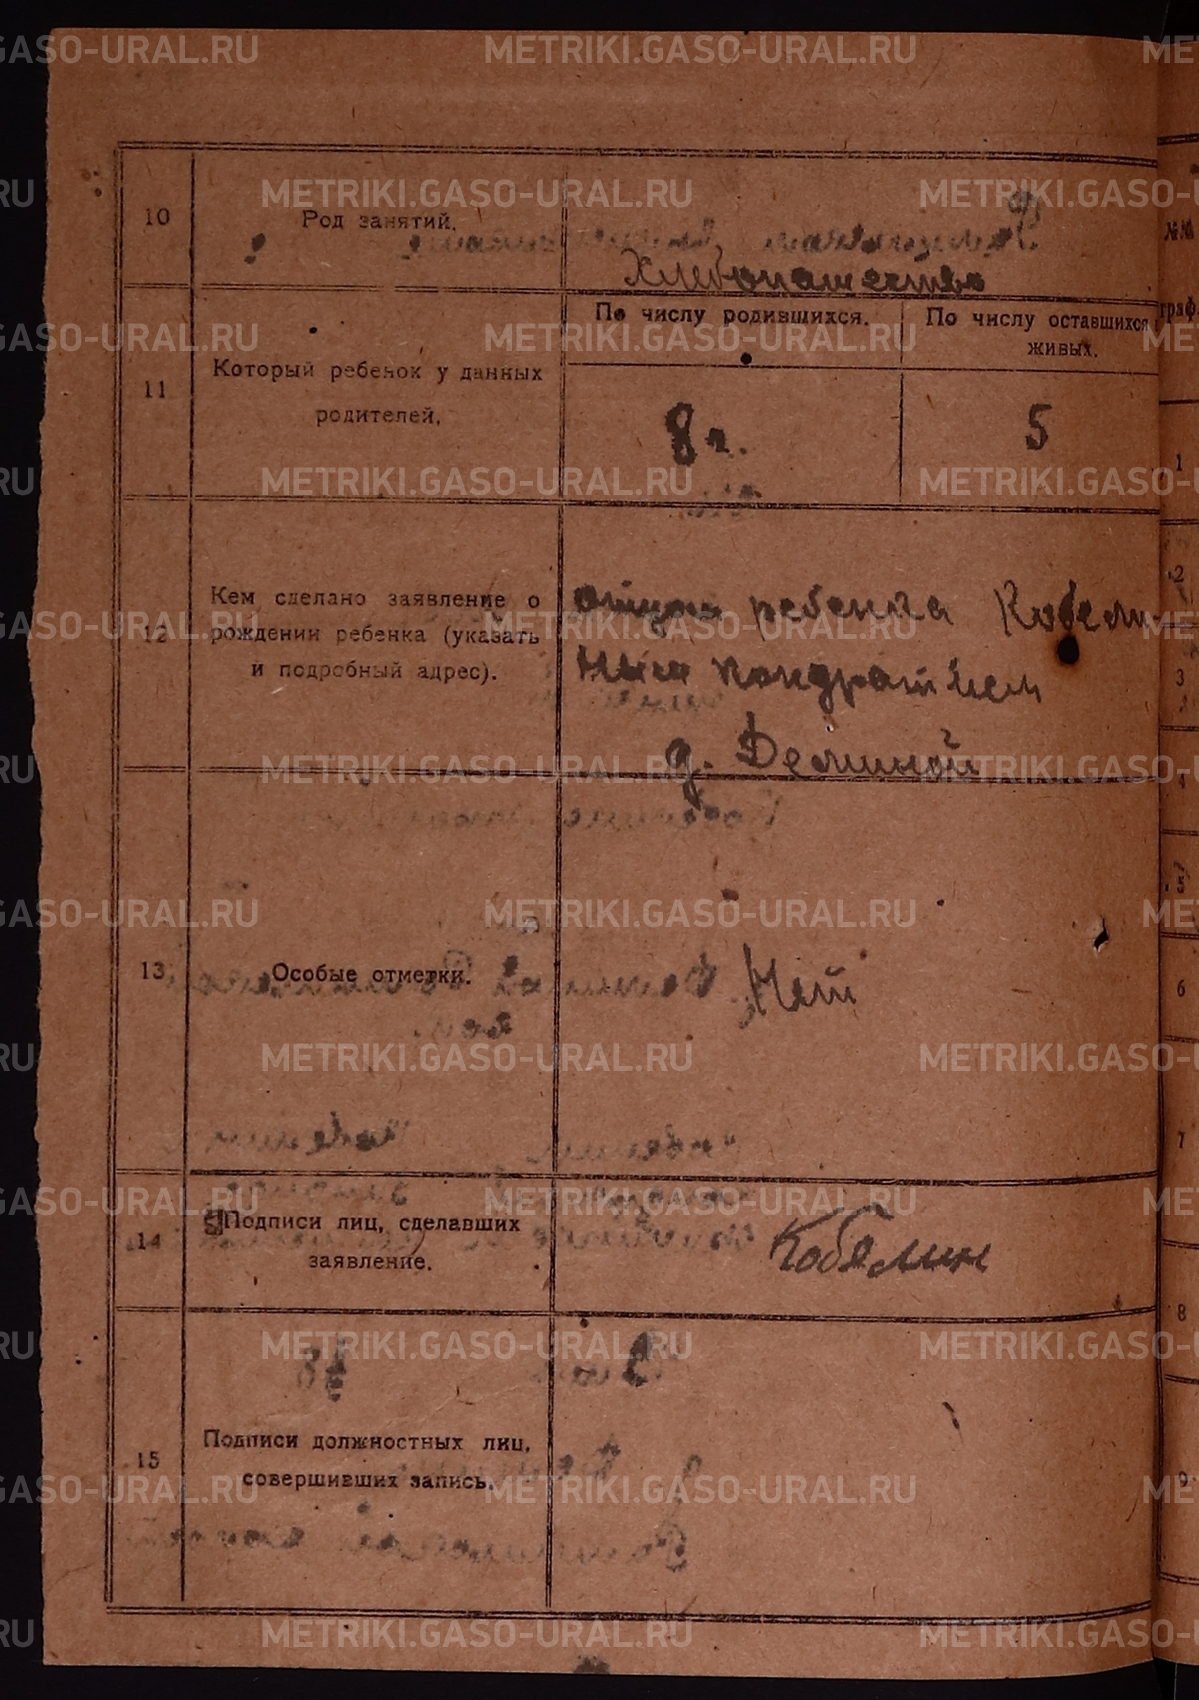 10
Род занятий.
Хлебопашество
11
Который ребенок у данных
родителей.
По числу родившихся.
По числу оставшихся
живых.
8
5
12
Кем сделано заявление о
рождении ребенка (указать
и подробный адрес).
отцом ребенка Кобели-
ным Кондратием
д. Деминой
13
Особые отметки.
Нет
14
Подписи лиц, сделавших
заявление.
Кобялин
15
Подписи должностных лиц,
совершивших запись.
№№
граф.
1
2
3
4
5
6
7
8
9
METRIKI.GASO-URAL.RU